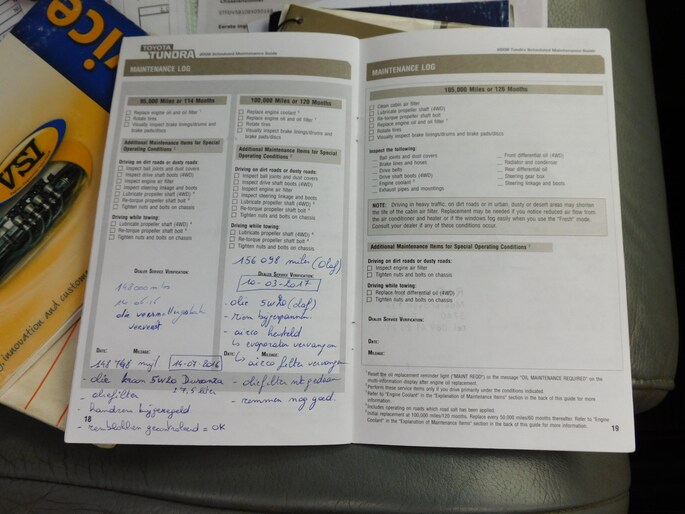 vice
TSA
innovation and custome
TOYOTA
TUNDRA
2008 Scheduled Maintenance Guide
MAINTENANCE LOG
95,000 Miles or 114 Months
Replace engine oil and oil filter
Rotate tires
Visually inspect brake linings/drums and
brake pads/discs
Additional Maintenance Items for Special
Operating Conditions
Driving on dirt roads or dusty roads:
Inspect ball joints and dust covers
Inspect drive shaft boots (4WD)
Inspect engine air filter
Inspect steering linkage and boots
Lubricate propeller shaft (4WD)
Re-torque propeller shaft bolt
Tighten nuts and bolts on chassis
Driving while towing:
Lubricate propeller shaft (4WD)
Re-torque propeller shaft bolt
Tighten nuts and bolts on chassis
DEALER SERVICE VERIFICATION:
DATE:
MILEAGE:
148 748 myl
14-07-2016
- olie
5W20
- oliefilter
- handrem bijgeregeld
- remblokken gecontroleerd = OK
18
100,000 Miles or 120 Months
Replace engine coolant
Replace engine oil and oil filter
Rotate tires
Visually inspect brake linings/drums and
brake pads/discs
Additional Maintenance Items for Special
Operating Conditions
Driving on dirt roads or dusty roads:
Inspect ball joints and dust covers
Inspect drive shaft boots (4WD)
Inspect engine air filter
Inspect steering linkage and boots
Lubricate propeller shaft (4WD)
Re-torque propeller shaft bolt
Tighten nuts and bolts on chassis
Driving while towing:
Lubricate propeller shaft (4WD)
Re-torque propeller shaft bolt
Tighten nuts and bolts on chassis
156 098 miles (Olaf)
DEALER SERVICE VERIFICATION:
10-03-2017
- olie 5W20 (olaf)
- riem bijgespannen
- airco hersteld
↳ evaporator vervangen
DATE:
MILEAGE:
↳ airco filter vervangen
- oliefilter
- remmen nog goed
2008 Tundra Scheduled Maintenance Guide
MAINTENANCE LOG
105,000 Miles or 126 Months
Clean cabin air filter
Lubricate propeller shaft (4WD)
Re-torque propeller shaft bolt
Replace engine oil and oil filter
Rotate tires
Visually inspect brake linings/drums and brake pads/discs
Inspect the following:
Ball joints and dust covers
Brake lines and hoses
Drive belts
Drive shaft boots (4WD)
Engine coolant
Exhaust pipes and mountings
Front differential oil (4WD)
Radiator and condenser
Rear differential oil
Steering gear box
Steering linkage and boots
NOTE: Driving in heavy traffic, on dirt roads or in urban, dusty or desert areas may shorten
the life of the cabin air filter. Replacement may be needed if you notice reduced air flow from
the air conditioner and heater or if the windows fog easily when you use the "Fresh" mode.
Consult your dealer if any of these conditions occur.
Additional Maintenance Items for Special Operating Conditions
Driving on dirt roads or dusty roads:
Inspect engine air filter
Tighten nuts and bolts on chassis
Driving while towing:
Replace front differential oil (4WD)
Tighten nuts and bolts on chassis
DEALER SERVICE VERIFICATION:
DATE:
MILEAGE:
Reset the oil replacement reminder light ("MAINT REQD") or the message "OIL MAINTENANCE REQUIRED" on the
multi-information display after engine oil replacement.
Perform these service items only if you drive primarily under the conditions indicated.
Refer to "Engine Coolant" in the "Explanation of Maintenance Items" section in the back of this guide for more
information.
Includes operating on roads which road salt has been applied.
Initial replacement at 100,000 miles/120 months. Replace every 50,000 miles/60 months thereafter. Refer to "Engine
Coolant" in the "Explanation of Maintenance Items" section in the back of this guide for more information.
19